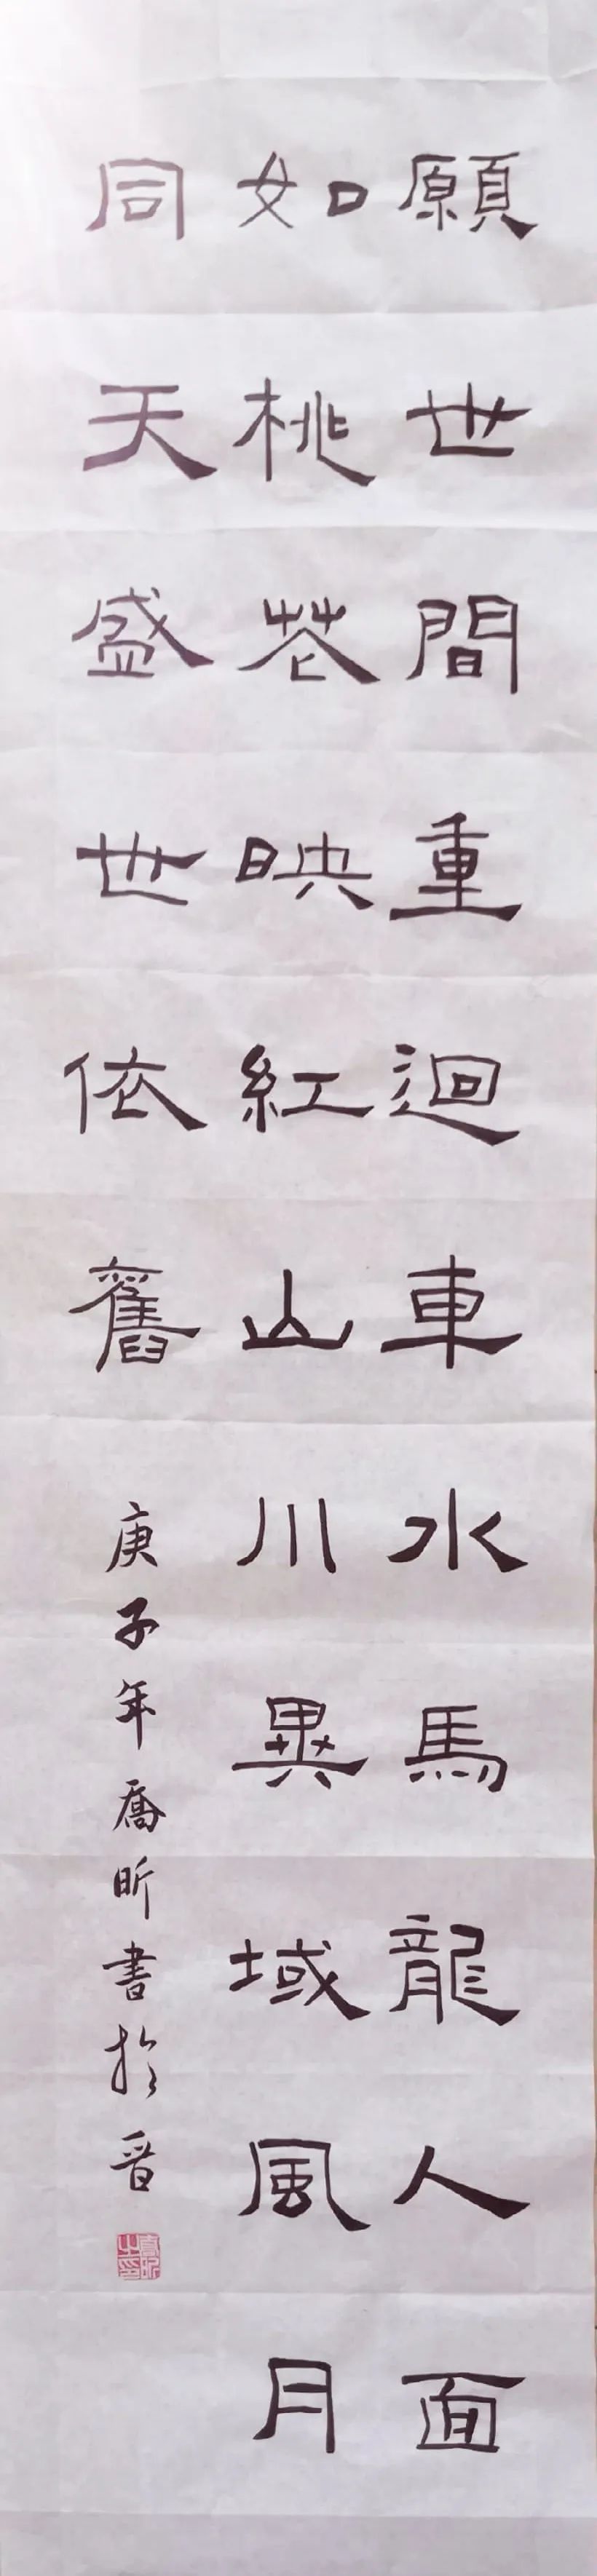 願世間重迴車水馬龍人面
如桃花映紅山川異域風月
同天盛世依舊
庚子年喬昕書於晉
喬昕之印